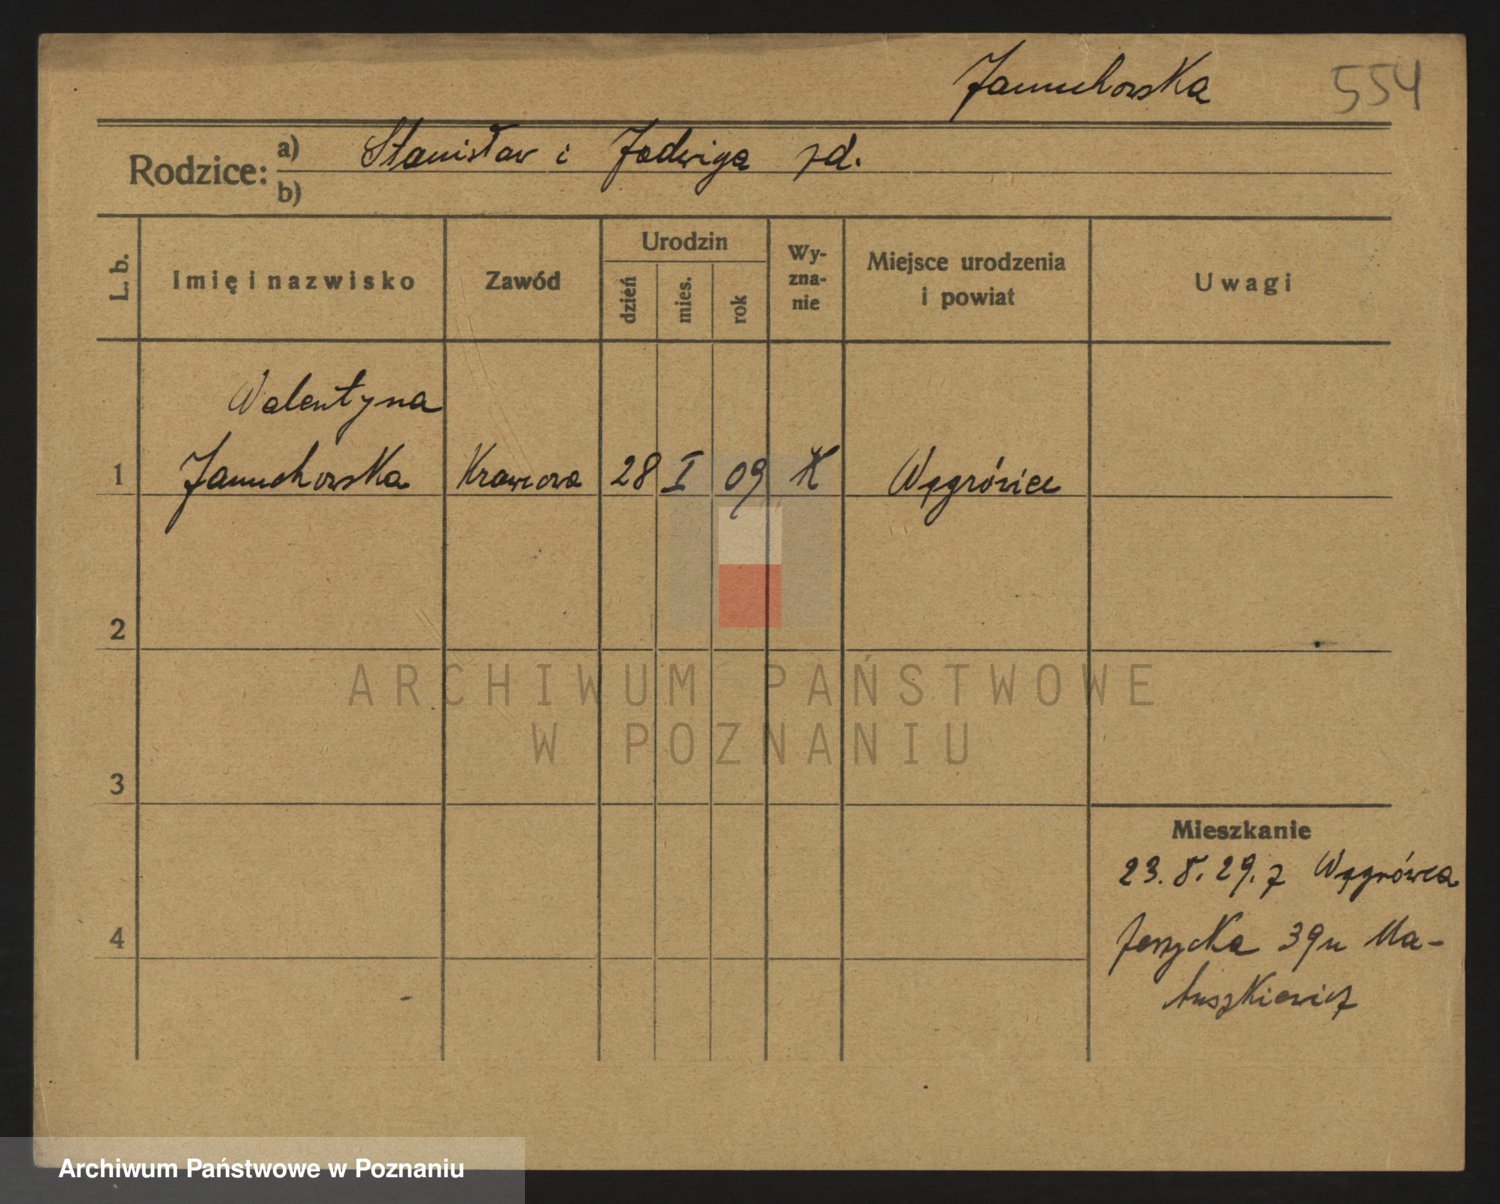 Januchowska 554
Rodzice: a) Stanisław i Jadwiga zd.
b)
L. b. Imię i nazwisko Zawód Urodzin dzień mies. rok Wyznanie Miejsce urodzenia i powiat Uwagi
Walentyna
1 Januchowska Krawcowa 28 I 09 K Wągrówiec
2
3
4
ARCHIWUM PAŃSTWOWE
W POZNANIU
Mieszkanie
23. 8. 29. z Wągrówca
39 u Ma-
tuszkiewicz
Archiwum Państwowe w Poznaniu